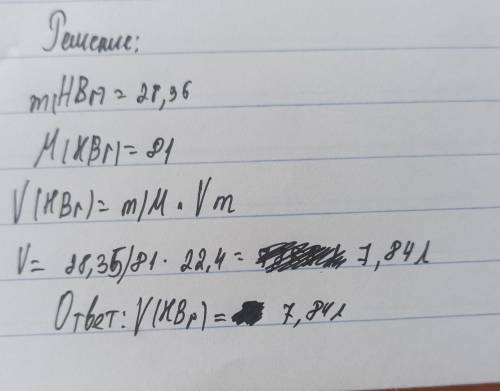 Решение:
m(HBr) = 28,36
M(HBr) = 81
V(HBr) = m/M · Vm
V = 28,35/81 · 22,4 = 7,84л
Ответ: V(HBr) = 7,84л